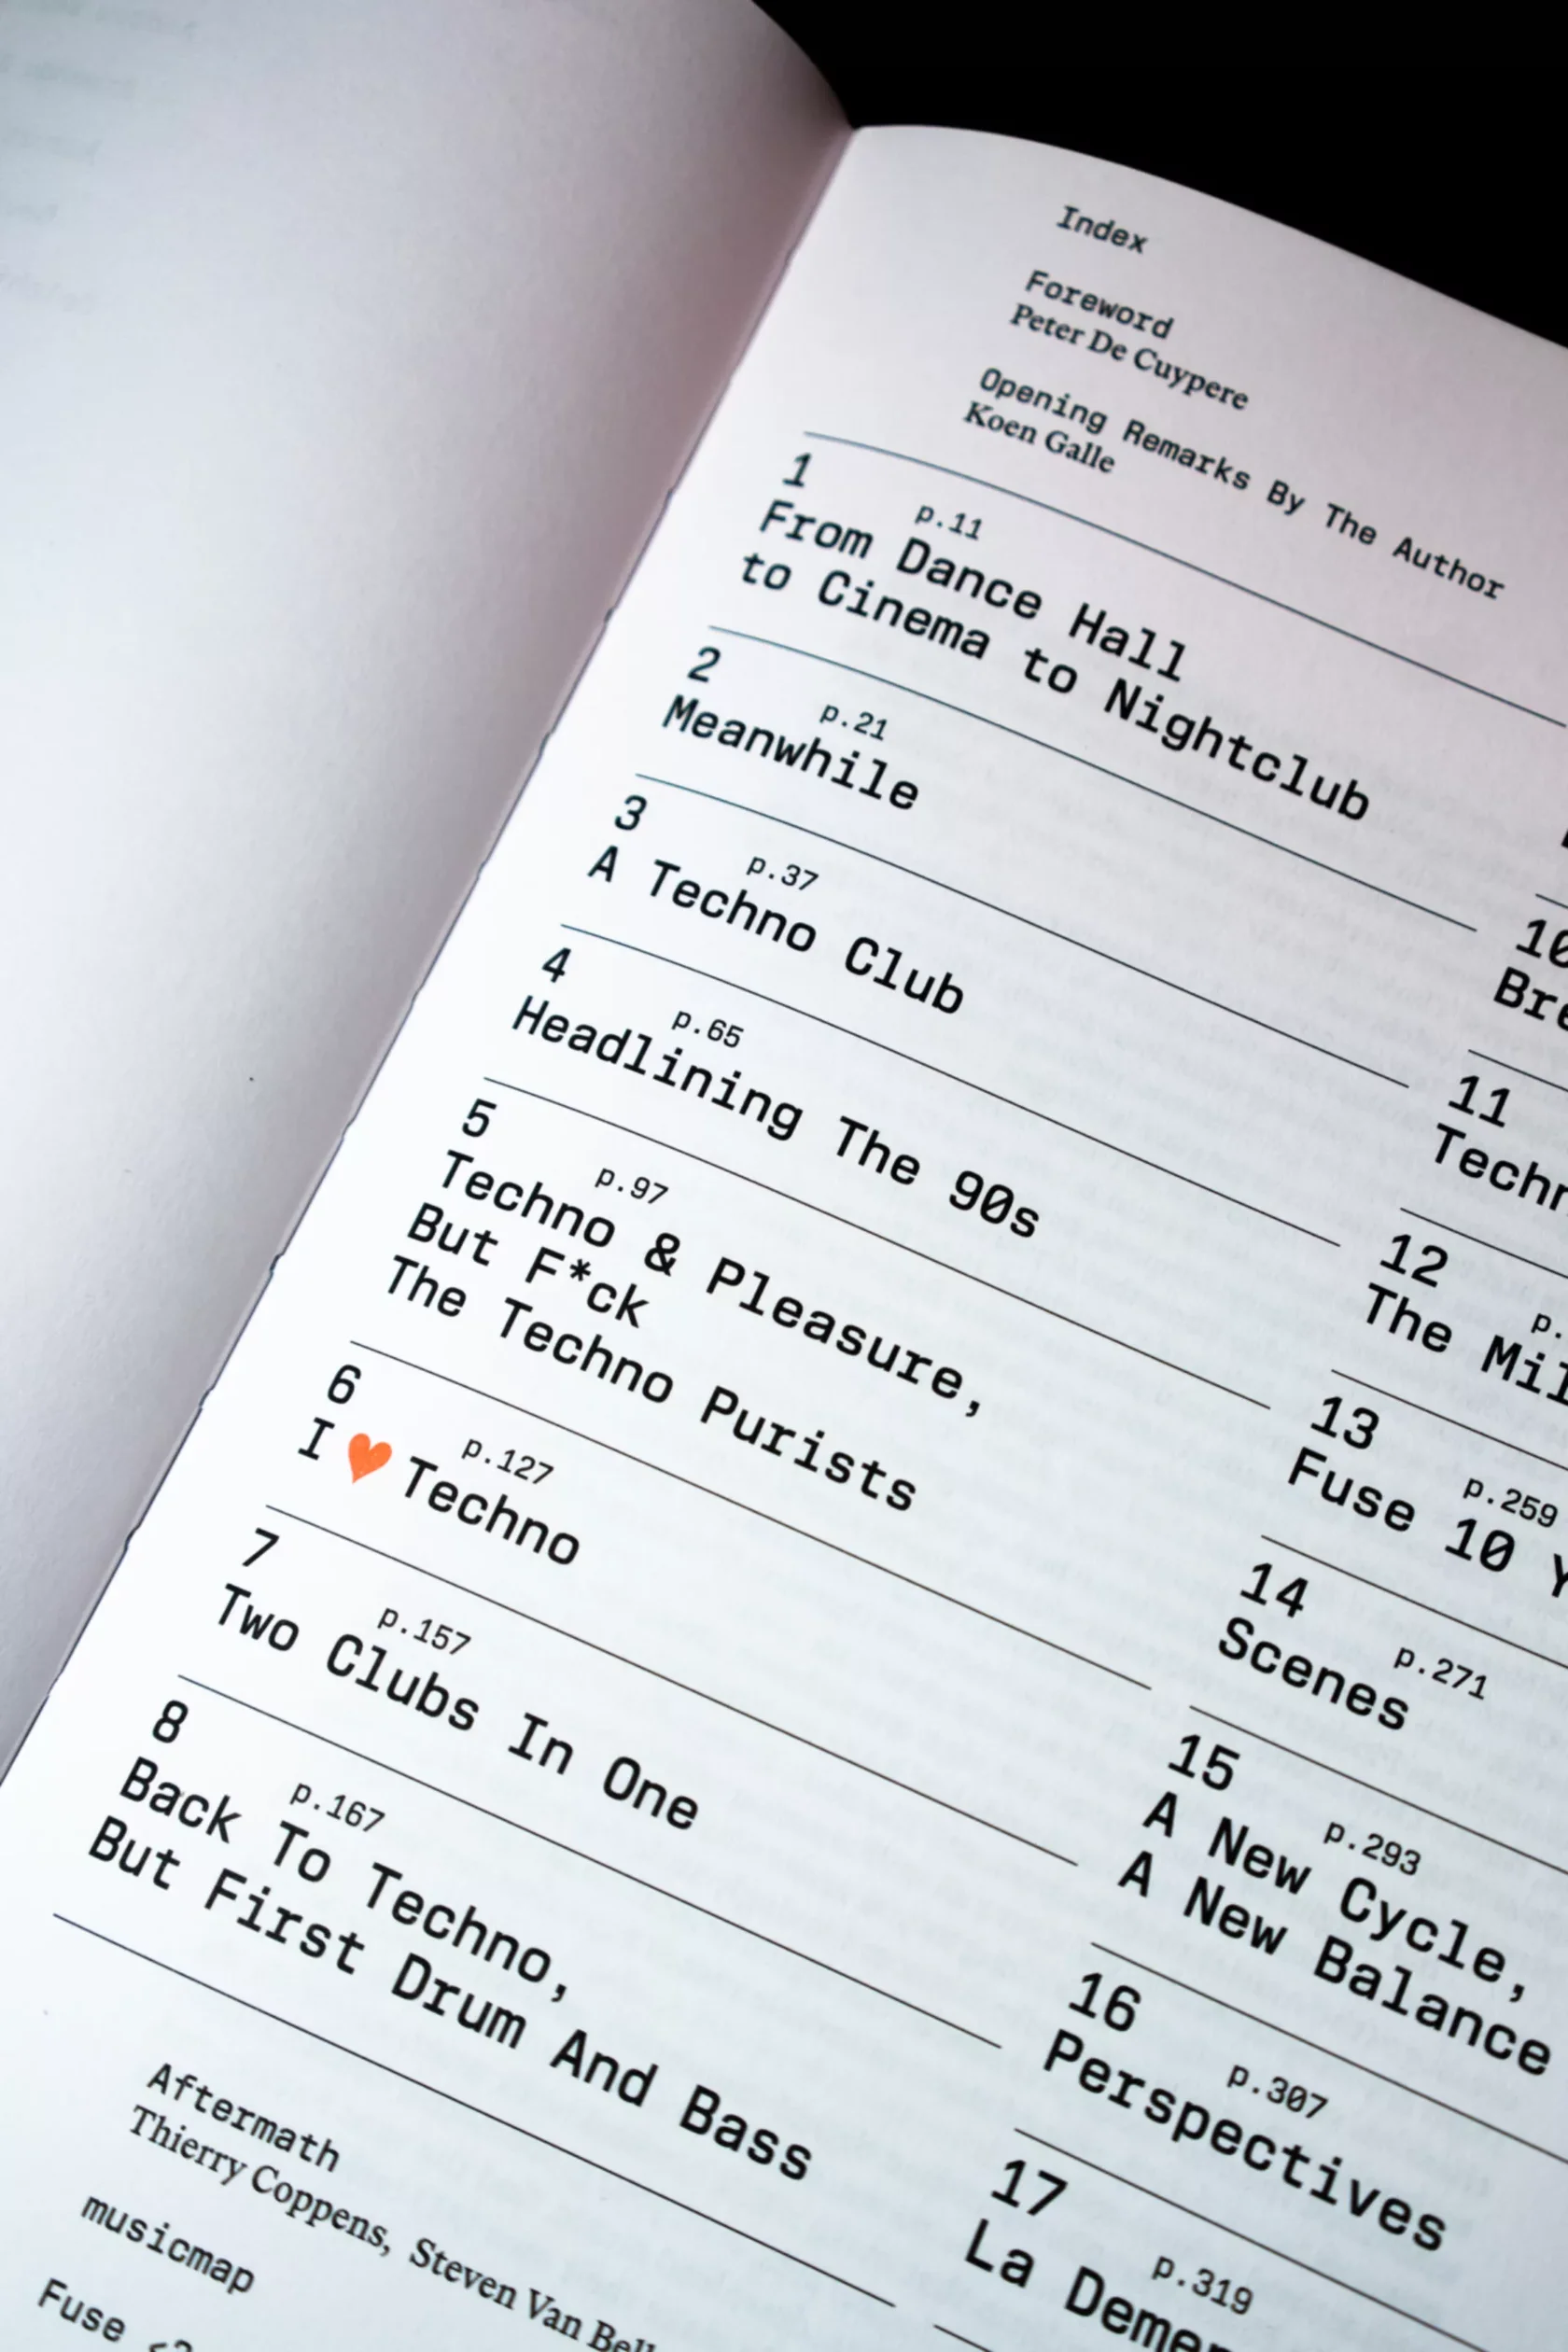 Index
Foreword
Peter De Cuypere
Opening Remarks By The Author
Koen Galle
1 p.11
From Dance Hall
to Cinema to Nightclub
2 p.21
Meanwhile
3 p.37
A Techno Club
4 p.65
Headlining The 90s
5 p.97
Techno & Pleasure,
But F*ck
The Techno Purists
6 p.127
I ♥ Techno
7 p.157
Two Clubs In One
8 p.167
Back To Techno,
But First Drum And Bass
Aftermath
Thierry Coppens, Steven Van
musicmap
Fuse
10
11
12 p.
The
13 p.259
Fuse 10
14 p.271
Scenes
15 p.293
A New Cycle,
A New Balance
16 p.307
Perspectives
17 p.319
La